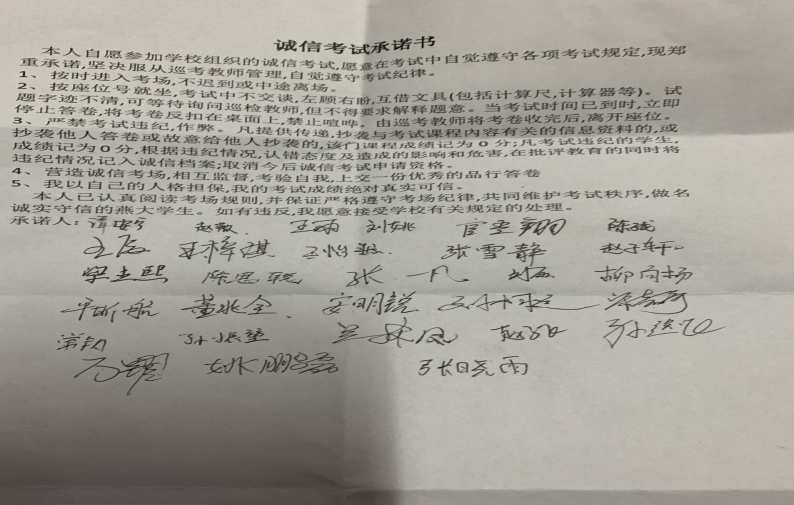 诚信考试承诺书
本人自愿参加学校组织的诚信考试,愿意在考试中自觉遵守各项考试规定,现郑
重承诺,坚决服从巡考教师管理,自觉遵守考试纪律。
1、 按时进入考场,不迟到或中途离场。
2、 按座位号就坐,考试中不交谈,左顾右盼,互借文具(包括计算尺,计算器等)。试
题字迹不清,可等待询问巡检教师,但不得要求解释题意。当考试时间已到时,立即
停止答卷,将考卷反扣在桌面上,禁止喧哗。由巡考教师将考卷收完后,离开座位。
3、 严禁考试违纪,作弊。凡提供传递,抄袭与考试课程内容有关的信息资料的,或
抄袭他人答卷或故意给他人抄袭的,该门课程成绩记为0分;凡考试违纪的学生,
成绩记为0分,根据违纪情况,认错态度及造成的影响和危害,在批评教育的同时将
违纪情况记入诚信档案;取消今后诚信考试申请资格。
4、 营造诚信考场,相互监督,考验自我,上交一份优秀的品行答卷
5、 我以自己的人格担保,我的考试成绩绝对真实可信。
本人已认真阅读考场规则,并保证严格遵守考场纪律,共同维护考试秩序,做名
诚实守信的燕大学生。如有违反,我愿意接受学校有关规定的处理。
承诺人: 王雨 刘姚
张雪静
张一凡 柳向扬
董兆全 安明锐
姚鹏磊 张晓雨